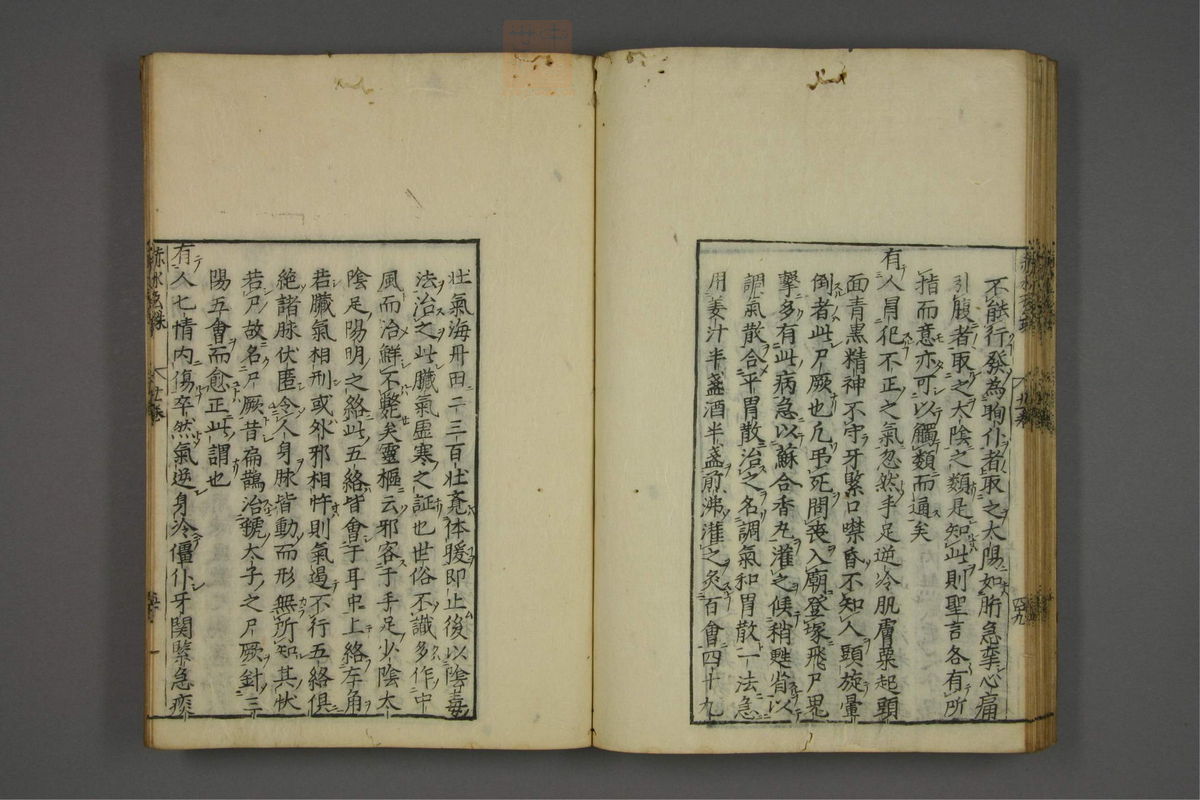 不能行發為眴仆者取之太陽如胻急攣心痛
引腹者取之太陰之類是知此則聖言各有所
指而意亦可以觸類而通矣
有人冐犯不正之氣忽然手足逆冷肌膚粟起頭
面青黑精神不守牙緊口噤昏不知人頭旋暈
倒者此尸厥也凢吊死問喪入廟登塚飛尸鬼
擊多有此病急以蘇合香丸灌之候稍甦省以
調氣散合平胃散治之名調氣和胃散一法急
用姜汁半盞酒半盞煎沸灌之灸百會四十九
壯氣海丹田二三百壯竟体暖即止後以陰毒
法治之此臟氣虛寒之証也世俗不識多作中
風而治鮮不斃矣靈樞云邪客于手足少陰太
陰足陽明之絡此五絡皆會于耳中上絡左角
若臟氣相刑或外邪相忤則氣遏不行五絡俱
絕諸脉伏匿令人身脉皆動而形無所知其狀
若尸故名尸厥昔扁鵲治虢太子之尸厥針三
陽五會而愈正此謂也
有人七情内傷卒然氣逆身冷僵仆牙関緊急痰
赤水玄珠